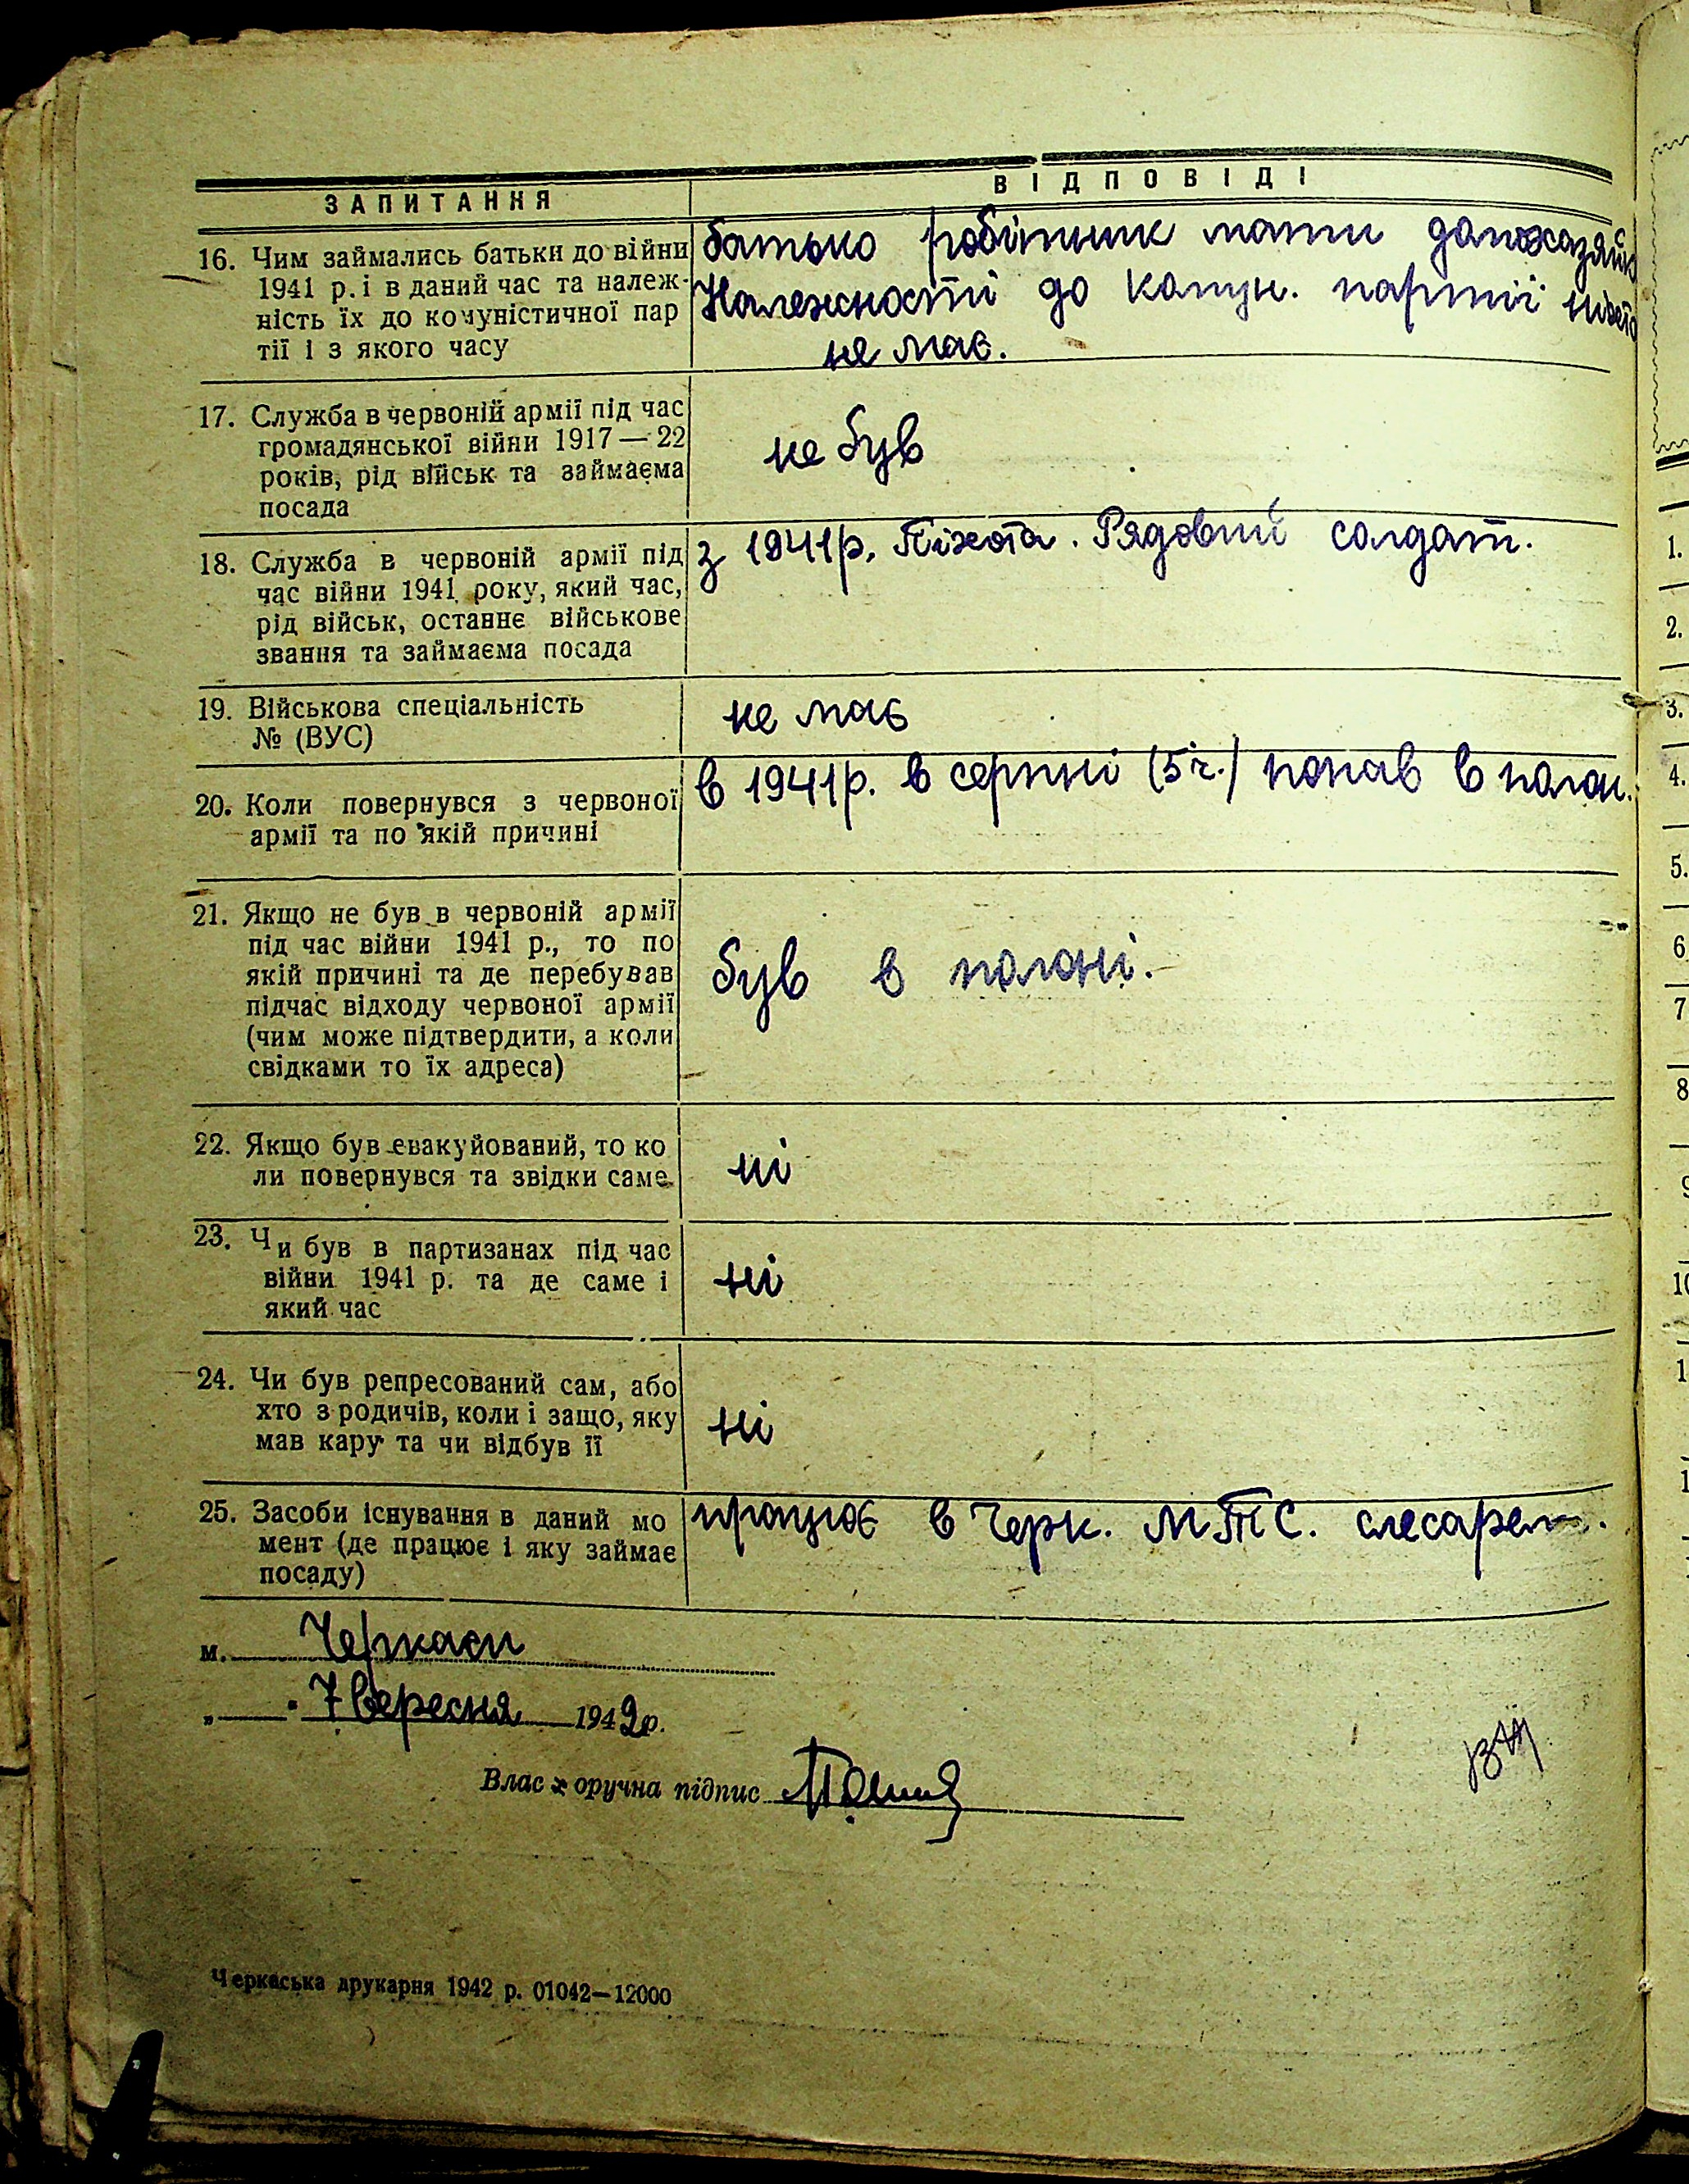 ЗАПИТАННЯ
ВІДПОВІДІ
16. Чим займались батьки до війни
1941 р. і в даний час та належ-
ність їх до комуністичної пар
тії і з якого часу
батько робітник мати домохазяйка
Належності до комун. партії ніхто
не має.
17. Служба в червоній армії під час
громадянської війни 1917—22
років, рід військ та займаєма
посада
не був
18. Служба в червоній армії під
час війни 1941 року, який час,
рід військ, останнє військове
звання та займаєма посада
з 1941р. Піхота. Рядовий солдат.
19. Військова спеціальність
№ (ВУС)
не має
20. Коли повернувся з червоної
армії та по якій причині
в 1941р. в серпні (5 ч.) попав в полон.
21. Якщо не був в червоній армії
під час війни 1941 р., то по
якій причині та де перебував
підчас відходу червоної армії
(чим може підтвердити, а коли
свідками то їх адреса)
був в полоні.
22. Якщо був евакуйований, то ко
ли повернувся та звідки саме.
ні
23. Чи був в партизанах під час
війни 1941 р. та де саме і
який час
ні
24. Чи був репресований сам, або
хто з родичів, коли і защо, яку
мав кару та чи відбув її
ні
25. Засоби існування в даний мо
мент (де працює і яку займає
посаду)
працює в Черк. МТС. слесарем.
м. Черкаси
„ 7 вересня 1942р.
Влас оручна підпис
Черкаська друкарня 1942 р. 01042—12000
1.
2.
3.
4.
5.
6
7
8
9
10